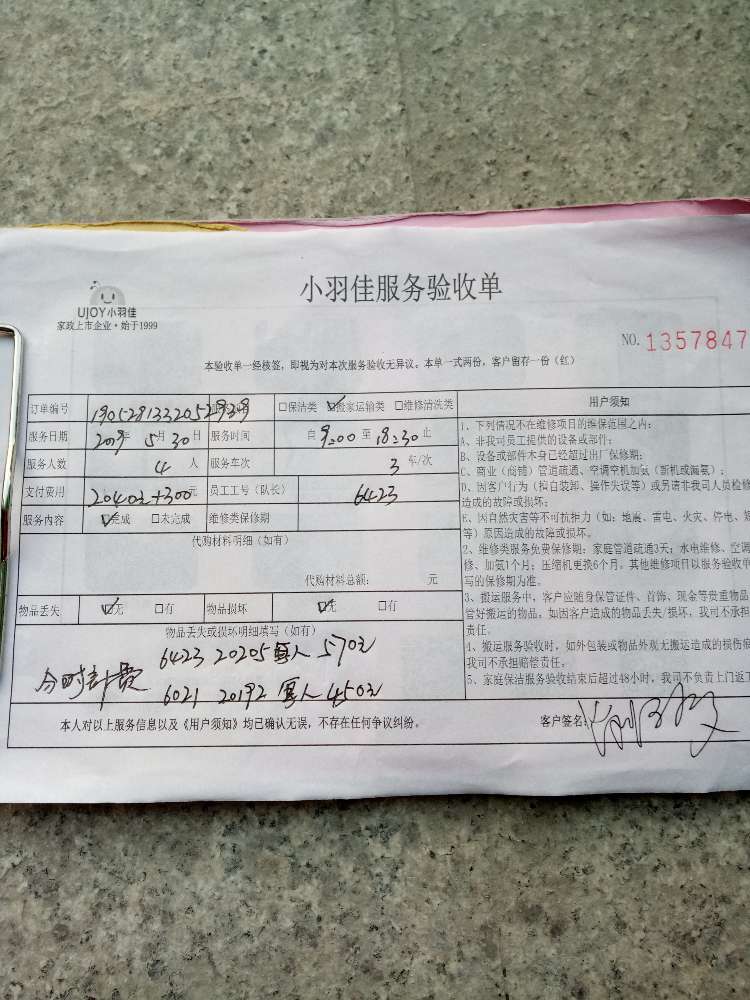 UJOY小羽佳
家政上市企业·始于1999
小羽佳服务验收单
NO. 1357847
本验收单一经核签，即视为对本次服务验收无异议。本单一式两份，客户留存一份（红）
订单编号 □保洁类 ☑搬家运输类 □维修清洗类
服务日期 2019年5月30日 服务时间 自9:00至18:30止
服务人数 4人 服务车次 3车/次
支付费用 2040元+300元 员工工号（队长） 6423
服务内容 ☑完成 □未完成 维修类保修期
代购材料明细（如有）
代购材料总额： 元
物品丢失 ☑无 □有 物品损坏 ☑无 □有
物品丢失或损坏明细填写（如有）
6423 20205 人 570元
分时计费
6021 20192 人 450元
本人对以上服务信息以及《用户须知》均已确认无误，不存在任何争议纠纷。
客户签名:
用户须知
1、下列情况不在维修项目的维保范围之内：
A、非我司员工提供的设备或部件；
B、设备或部件本身已经超过出厂保修期；
C、商业（商铺）管道疏通、空调空机加氨（新机或漏氨）；
D、因客户行为（擅自装卸、操作失误等）或另请非我司人员检修
造成的故障或损坏；
E、因自然灾害等不可抗拒力（如：地震、雷电、火灾、停电、
等）原因造成的故障或损坏。
2、维修类服务免费保修期：家庭管道疏通3天；水电维修、空调
修、加氨1个月；压缩机更换6个月。其他维修项目以服务验收单
写的保修期为准。
3、搬运服务中，客户应随身保管证件、首饰、现金等贵重物品
管好搬运的物品，如因客户造成的物品丢失/损坏，我司不承担
责任。
4、搬运服务验收时，如外包装或物品外观无搬运造成的损伤痕
我司不承担赔偿责任。
5、家庭保洁服务验收结束后超过48小时，我司不负责上门返工